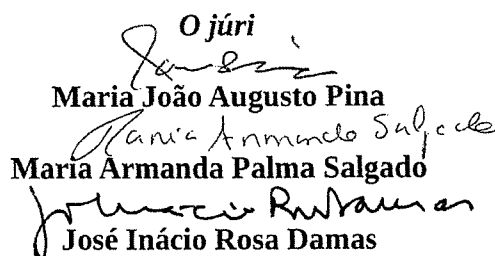 O júri
Maria João Augusto Pina
Maria Armanda Salgado
Maria Armanda Palma Salgado
José Inácio Rosa Damas